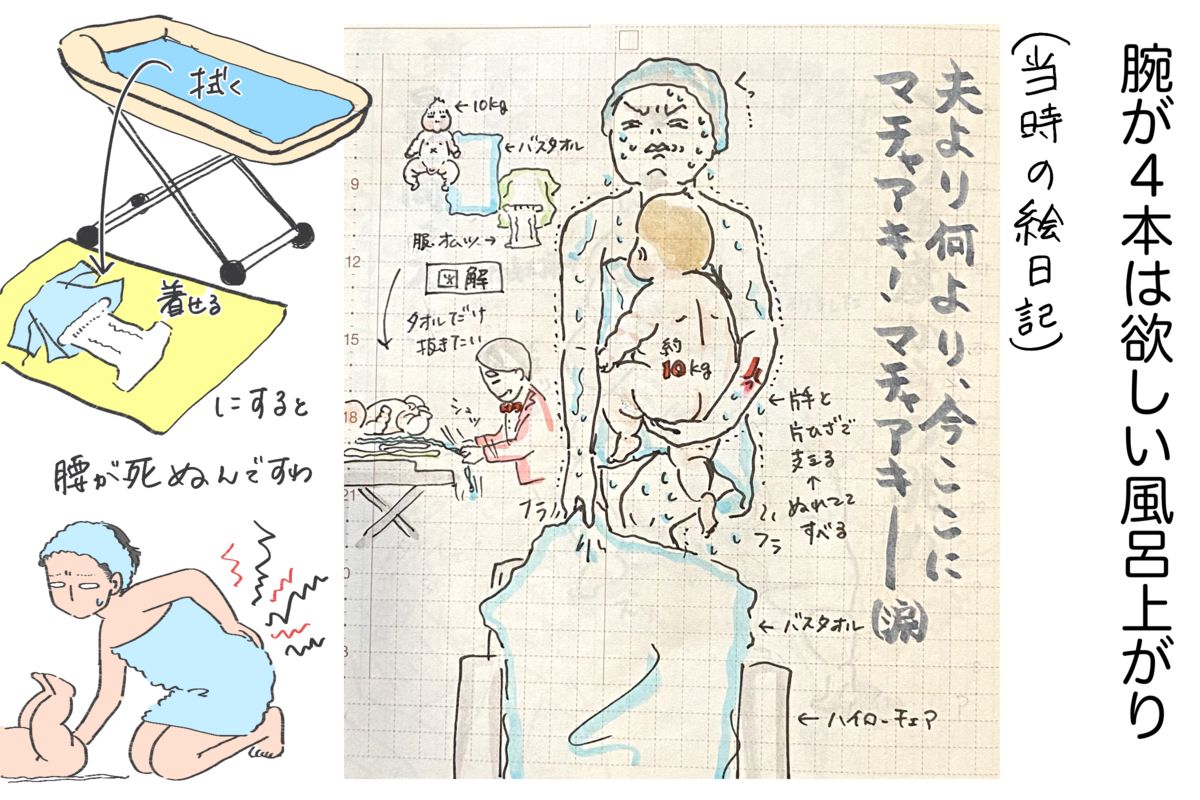 腕が4本は欲しい風呂上がり
(当時の絵日記)
夫より何より、今ここに
マチャアキ!マチャアキー(涙)
くっ
←10kg
←バスタオル
服・オムツ→
図解
タオルだけ
抜きたい
シュッ
約
10kg
←片手と
片ひざで
支える
↑
ぬれてて
すべる
フラ
フラ
←バスタオル
←ハイローチェア
9
12
15
18
21
拭く
着せる
にすると
腰が死ぬんですわ